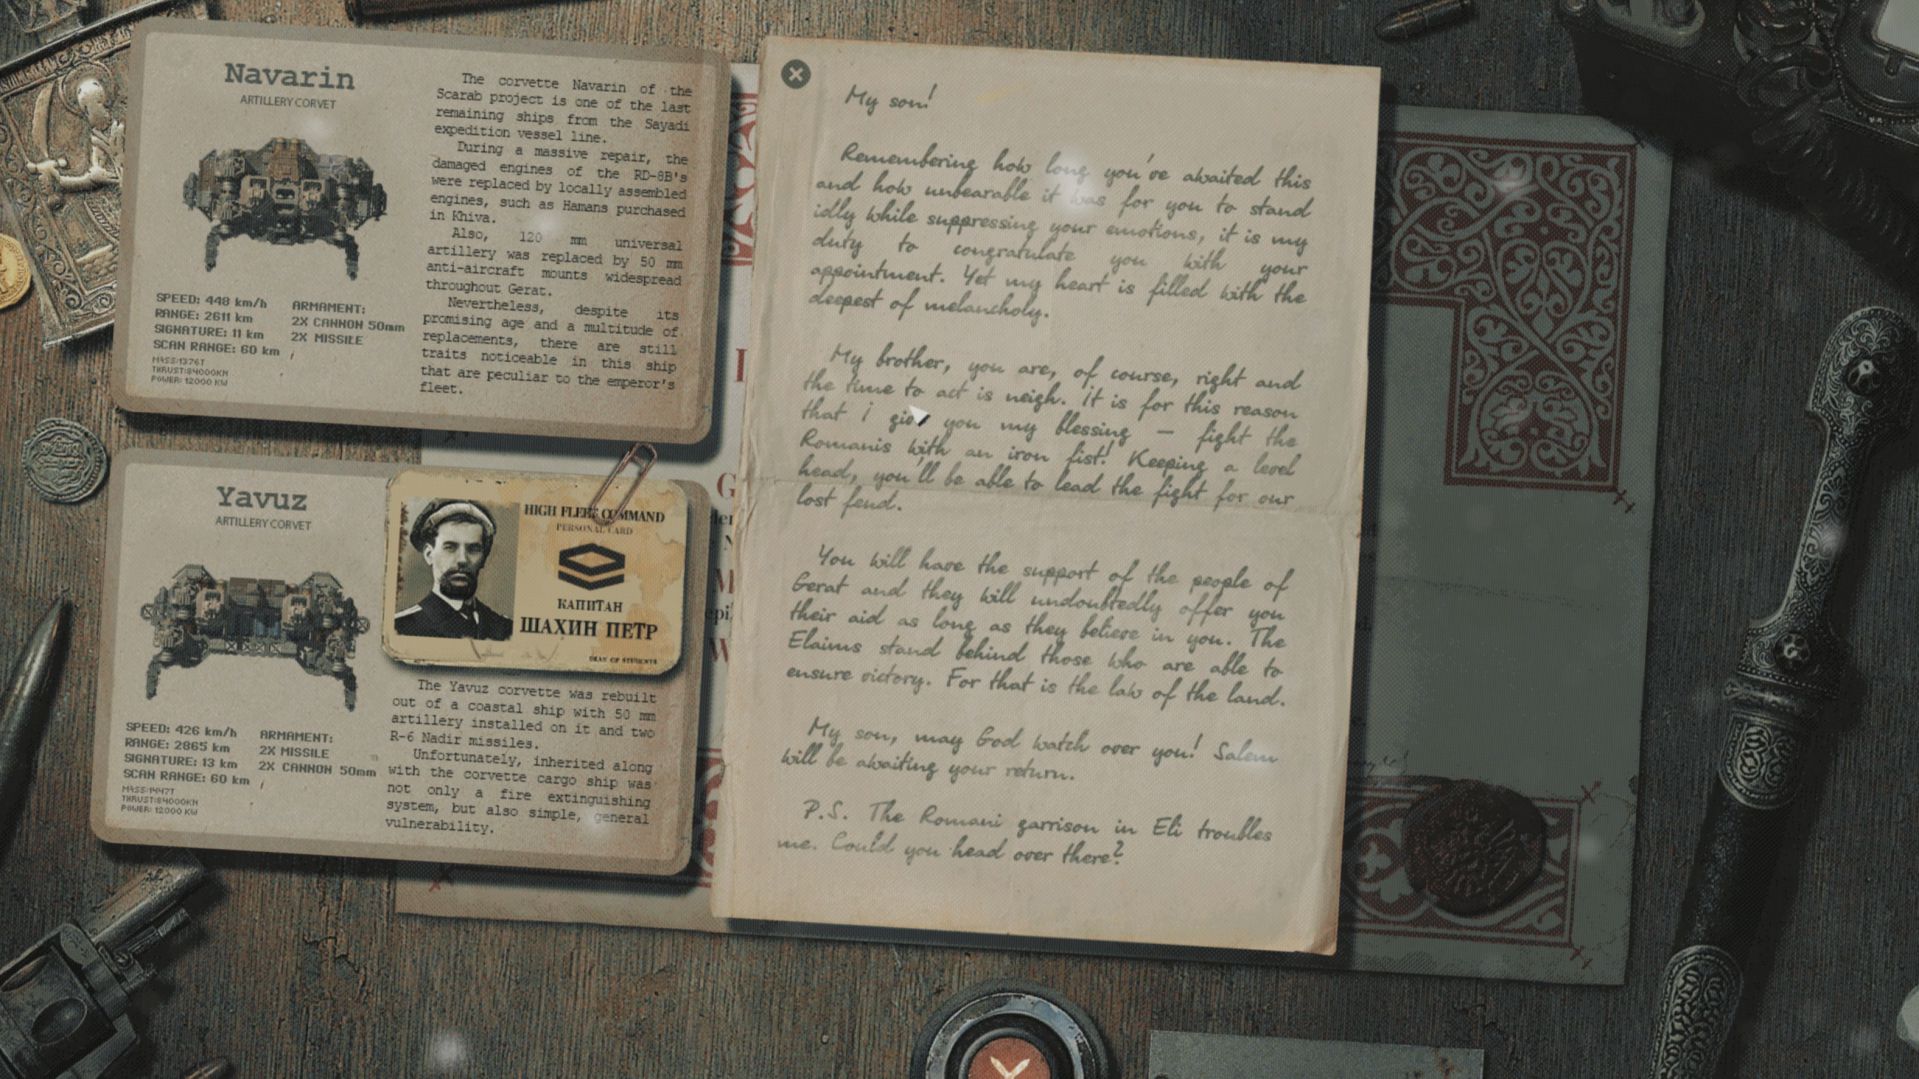 Navarin
ARTILLERY CORVET
The corvette Navarin of the
Scarab project is one of the last
remaining ships from the Sayadi
expedition vessel line.
During a massive repair, the
damaged engines of the RD-8B's
were replaced by locally assembled
engines, such as Hamans purchased
in Khiva.
Also, 120 mm universal
artillery was replaced by 50 mm
anti-aircraft mounts widespread
throughout Gerat.
Nevertheless, despite its
promising age and a multitude of
replacements, there are still
traits noticeable in this ship
that are peculiar to the emperor's
fleet.
SPEED: 448 km/h
RANGE: 2611 km
SIGNATURE: 11 km
SCAN RANGE: 60 km
MASS:1376T
THRUST:84000KN
POWER: 12000 KW
ARMAMENT:
2X CANNON 50mm
2X MISSILE
Yavuz
ARTILLERY CORVET
HIGH FLEET COMMAND
PERSONAL CARD
КАПИТАН
ШАХИН ПЕТР
DEAN OF STUDENTS
The Yavuz corvette was rebuilt
out of a coastal ship with 50 mm
artillery installed on it and two
R-6 Nadir missiles.
Unfortunately, inherited along
with the corvette cargo ship was
not only a fire extinguishing
system, but also simple, general
vulnerability.
SPEED: 426 km/h
RANGE: 2865 km
SIGNATURE: 13 km
SCAN RANGE: 60 km
MASS:1447T
THRUST:84000KN
POWER: 12000 KW
ARMAMENT:
2X MISSILE
2X CANNON 50mm
My son!
Remembering how long you've awaited this
and how unbearable it was for you to stand
idly while suppressing your emotions, it is my
duty to congratulate you with your
appointment. Yet my heart is filled with the
deepest of melancholy.
My brother, you are, of course, right and
the time to act is neigh. It is for this reason
that I give you my blessing – fight the
Romanis with an iron fist! Keeping a level
head, you'll be able to lead the fight for our
lost feud.
You will have the support of the people of
Gerat and they will undoubtedly offer you
their aid as long as they believe in you. The
Elaims stand behind those who are able to
ensure victory. For that is the law of the land.
My son, may God watch over you! Salem
will be awaiting your return.
P.S. The Romani garrison in Eli troubles
me. Could you head over there?